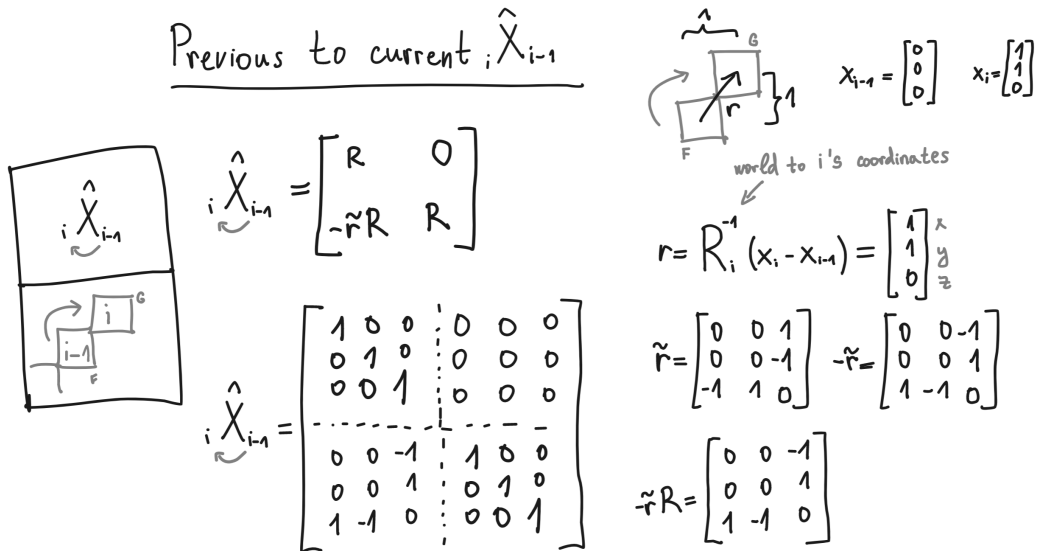 Previous to current ᵢX̂ᵢ₋₁
ᵢX̂ᵢ₋₁
i
G
i-1
F
ᵢX̂ᵢ₋₁ = [ R 0
-r̃R R ]
ᵢX̂ᵢ₋₁ = [ 1 0 0 0 0 0
0 1 0 0 0 0
0 0 1 0 0 0
0 0 -1 1 0 0
0 0 1 0 1 0
1 -1 0 0 0 1 ]
1
G
r
} 1
F
xᵢ₋₁ = [ 0
0
0 ]
xᵢ = [ 1
1
0 ]
world to i's coordinates
r = Rᵢ⁻¹ (xᵢ - xᵢ₋₁) = [ 1 x
1 y
0 ] z
r̃ = [ 0 0 1
0 0 -1
-1 1 0 ]
-r̃ = [ 0 0 -1
0 0 1
1 -1 0 ]
-r̃R = [ 0 0 -1
0 0 1
1 -1 0 ]